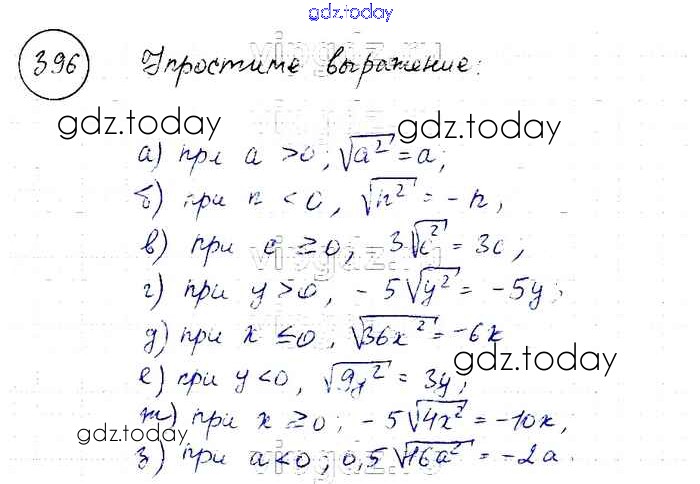 gdz.today
396 Упростите выражение:
gdz.today gdz.today
а) при a > 0; √a² = a;
б) при n < 0, √n² = -n,
в) при c ≥ 0, 3√c² = 3c;
г) при y > 0, -5√y² = -5y;
д) при x ≤ 0, √36x² = -6x
gdz.today
е) при y < 0, √9y² = 3y,
ж) при x ≥ 0; -5√4x² = -10x,
gdz.today
з) при a < 0; 0,5√16a² = -2a.